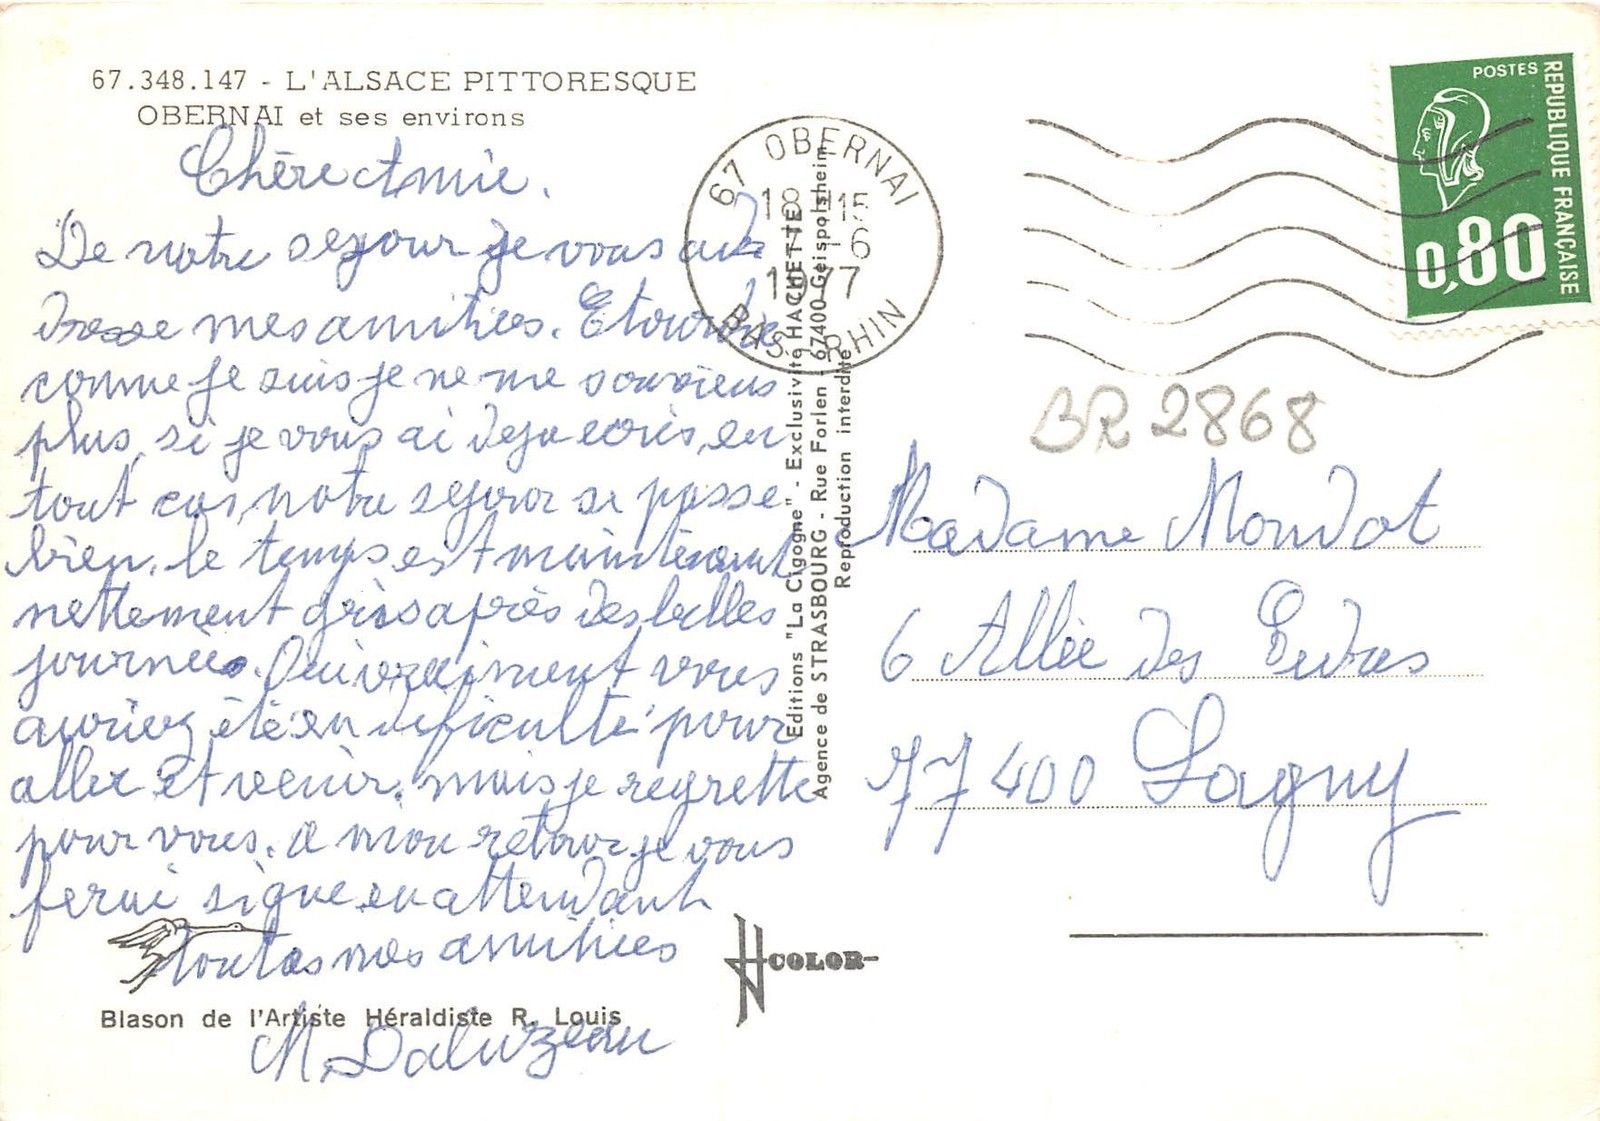 67.348.147 - L'ALSACE PITTORESQUE
OBERNAI et ses environs
Chère Amie.
De notre sejour je vous ad
dresse mes amitiées. Etourdie
comme je suis je ne me souviens
plus, si je vous ai deja ecris, en
tout cas, notre sejour se passe
bien, le temps est maintenant
nettement gris après des belles
journées. Oui vraiment vous
auriez été en dificulté pour
aller et venir. mais je regrette
pour vous. a mon retour je vous
ferai signe en attendant
toutes mes amitiées
M. Daluzeau
Blason de l'Artiste Héraldiste R. Louis
67 OBERNAI
18 H 15
-6
1977
BAS-RHIN
Editions "La Cigogne" - Exclusivité HACHETTE
Agence de STRASBOURG - Rue Forlen - 67400 Geispolsheim
Reproduction interdite
COLOR
POSTES
REPUBLIQUE FRANÇAISE
0,80
BR 2868
Madame Mondot
6 Allée des
77400 Lagny